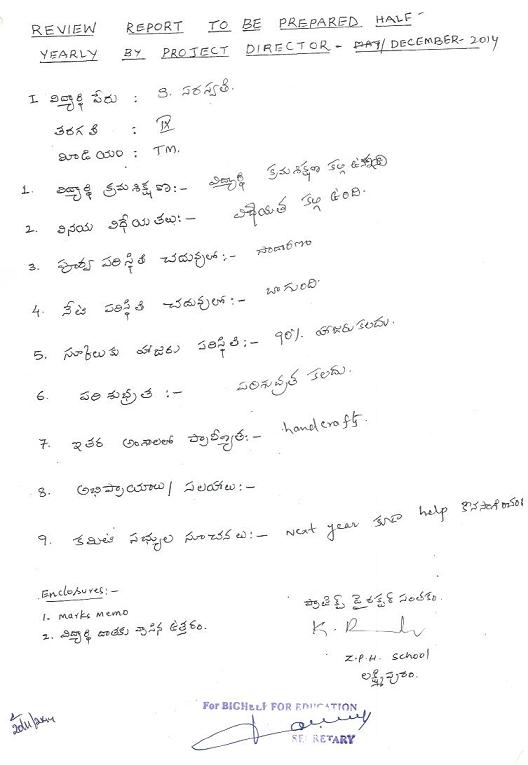 REVIEW REPORT TO BE PREPARED HALF-
YEARLY BY PROJECT DIRECTOR - MAY/DECEMBER-2014
I. విద్యార్థి పేరు : S. సరస్వతి.
తరగతి : IX
మీడియం : TM.
1. విద్యార్థి క్రమశిక్షణ:- విద్యార్థి క్రమశిక్షణ కల్గి
2. వినయ విధేయతలు:- విధేయత కల్గి ఉంది.
3. పూర్వ పరిస్థితి చదువులో:- సాదారణం
4. నేటి పరిస్థితి చదువులో:- బాగుంది.
5. స్కూలుకు హాజరు పరిస్థితి:- 90% హాజరు కలదు.
6. పరిశుభ్రత :- పరిశుభ్రత కలదు.
7. ఇతర అంశాలలో ప్రావీణ్యత:- handcrafts.
8. అభిప్రాయాలు/ సలహాలు:-
9. కమిటి సభ్యుల సూచనలు:- Next year కూడా help
Enclosures:-
1. marks memo
2. విద్యార్థి దాతకు వ్రాసిన ఉత్తరం.
ప్రాజెక్ట్ డైరెక్టర్ సంతకం.
Z.P.H. School
లక్ష్మీపురం.
For BIGHELP FOR EDUCATION
SECRETARY